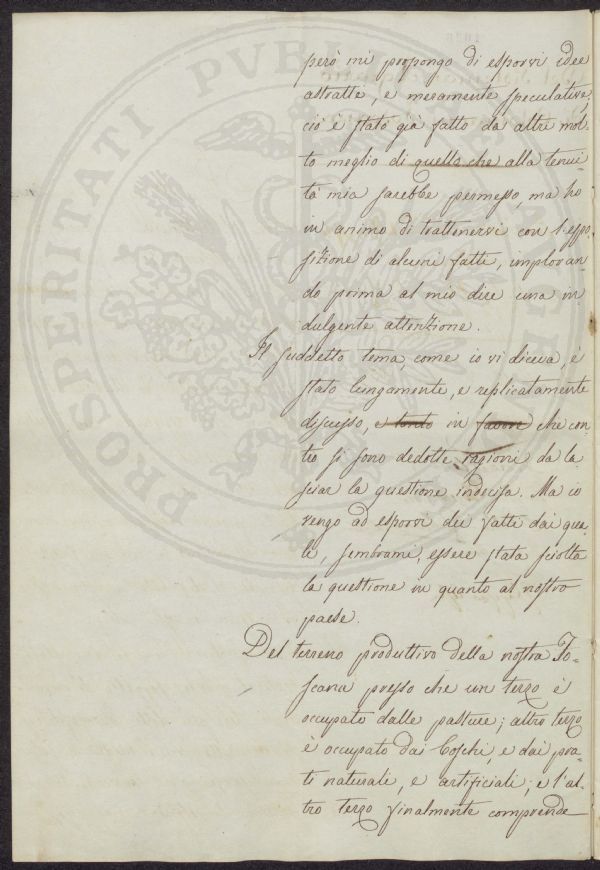 però mi propongo di esporvi idee
astratte, e meramente speculative,
ciò è stato già fatto da altri mol-
to meglio di quello che alla tenui-
tà mia sarebbe permesso, ma ho
in animo di trattenervi con l'espo
sizione di alcuni fatti, imploran
do prima al mio dire una in
dulgente attenzione.
Il suddetto tema, come io vi diceva, è
stato lungamente, e replicatamente
discusso, e tanto in favore che con
tro si sono dedotte ragioni da la
sciar la questione indecisa. Ma io
vengo ad esporvi dei fatti dai qua-
li, sembrami, essere stata sciolta
la questione in quanto al nostro
paese.
Del terreno produttivo della nostra To-
scana presso che un terzo è
occupato dalle pasture; altro terzo
è occupato dai Boschi, e dai pra-
ti naturali, e artificiali; e l'al-
tro terzo finalmente comprende
PROSPERITATI PVBLICAE